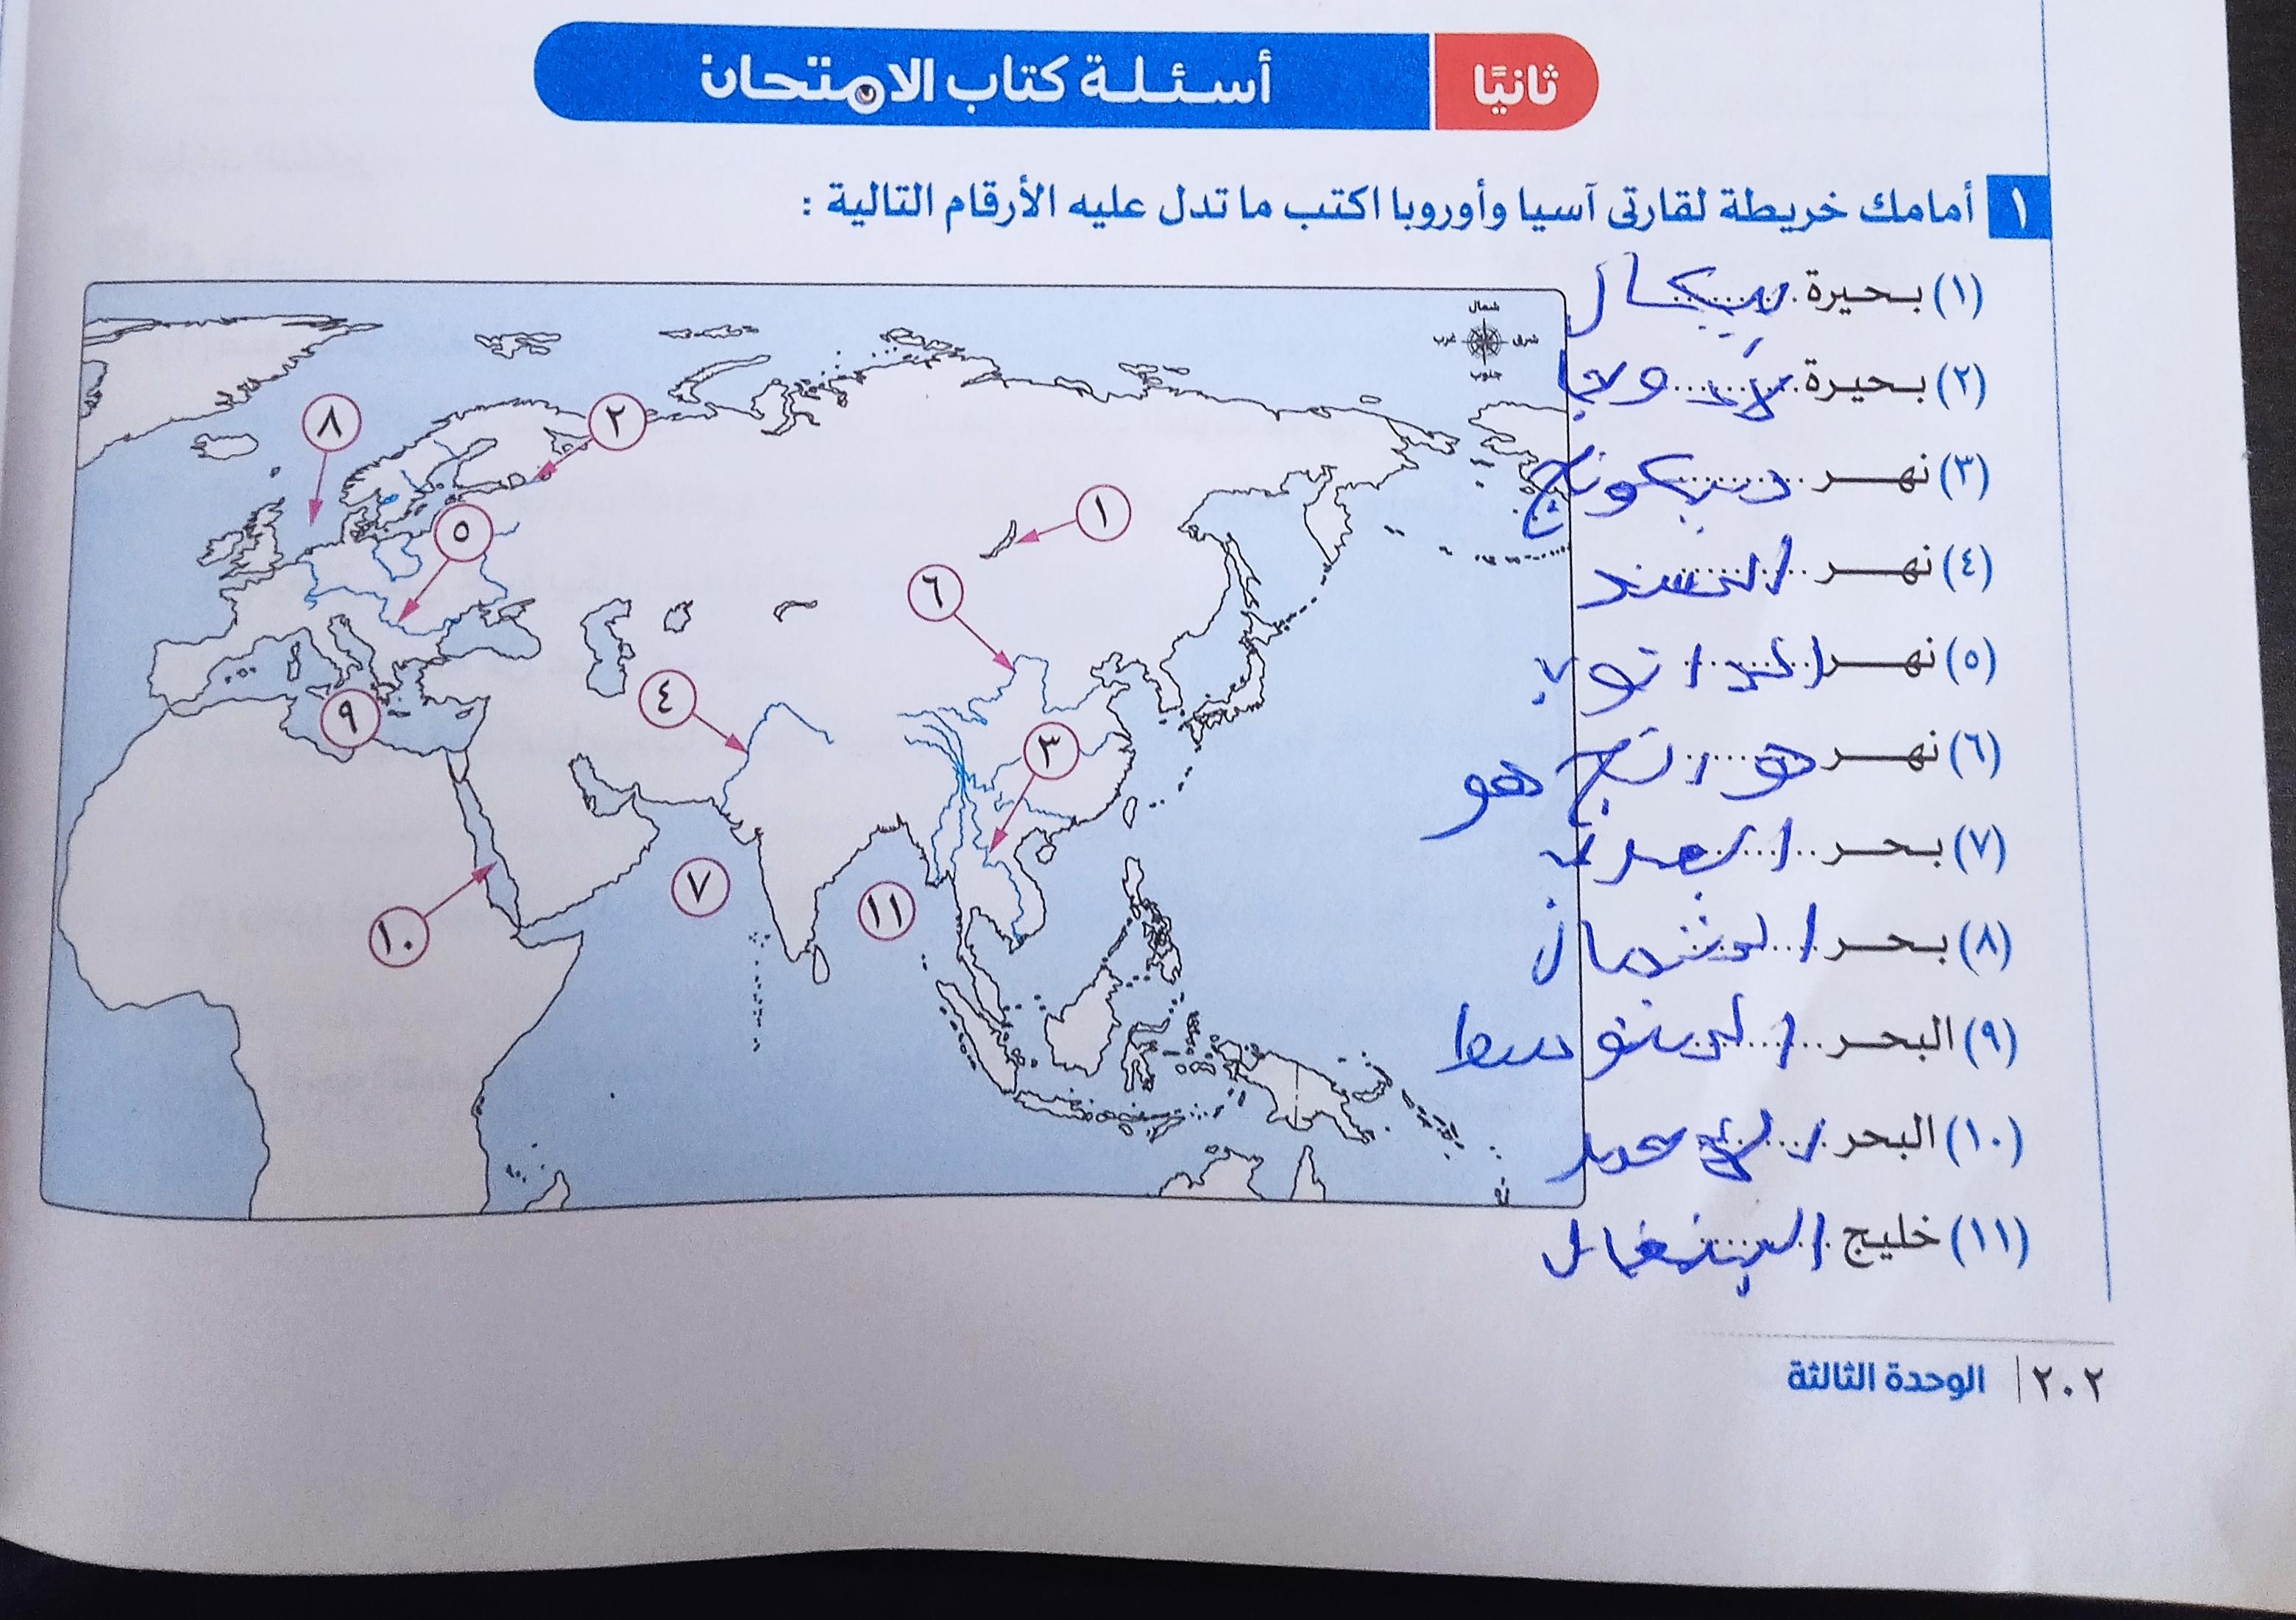 ثانيًا أسئلة كتاب الامتحان
١ أمامك خريطة لقارتى آسيا وأوروبا اكتب ما تدل عليه الأرقام التالية :
(١) بحيرة بيكال
(٢) بحيرة لادوجا
(٣) نهر ميكونج
(٤) نهر السند
(٥) نهر الدانوب
(٦) نهر هوانج هو
(٧) بحر العرب
(٨) بحر الشمال
(٩) البحر المتوسط
(١٠) البحر الأحمر
(١١) خليج البنغال
شمال
شرق
غرب
جنوب
٨
٢
٥
١
٦
٤
٩
٣
٧
١١
١٠
٢٠٢ | الوحدة الثالثة